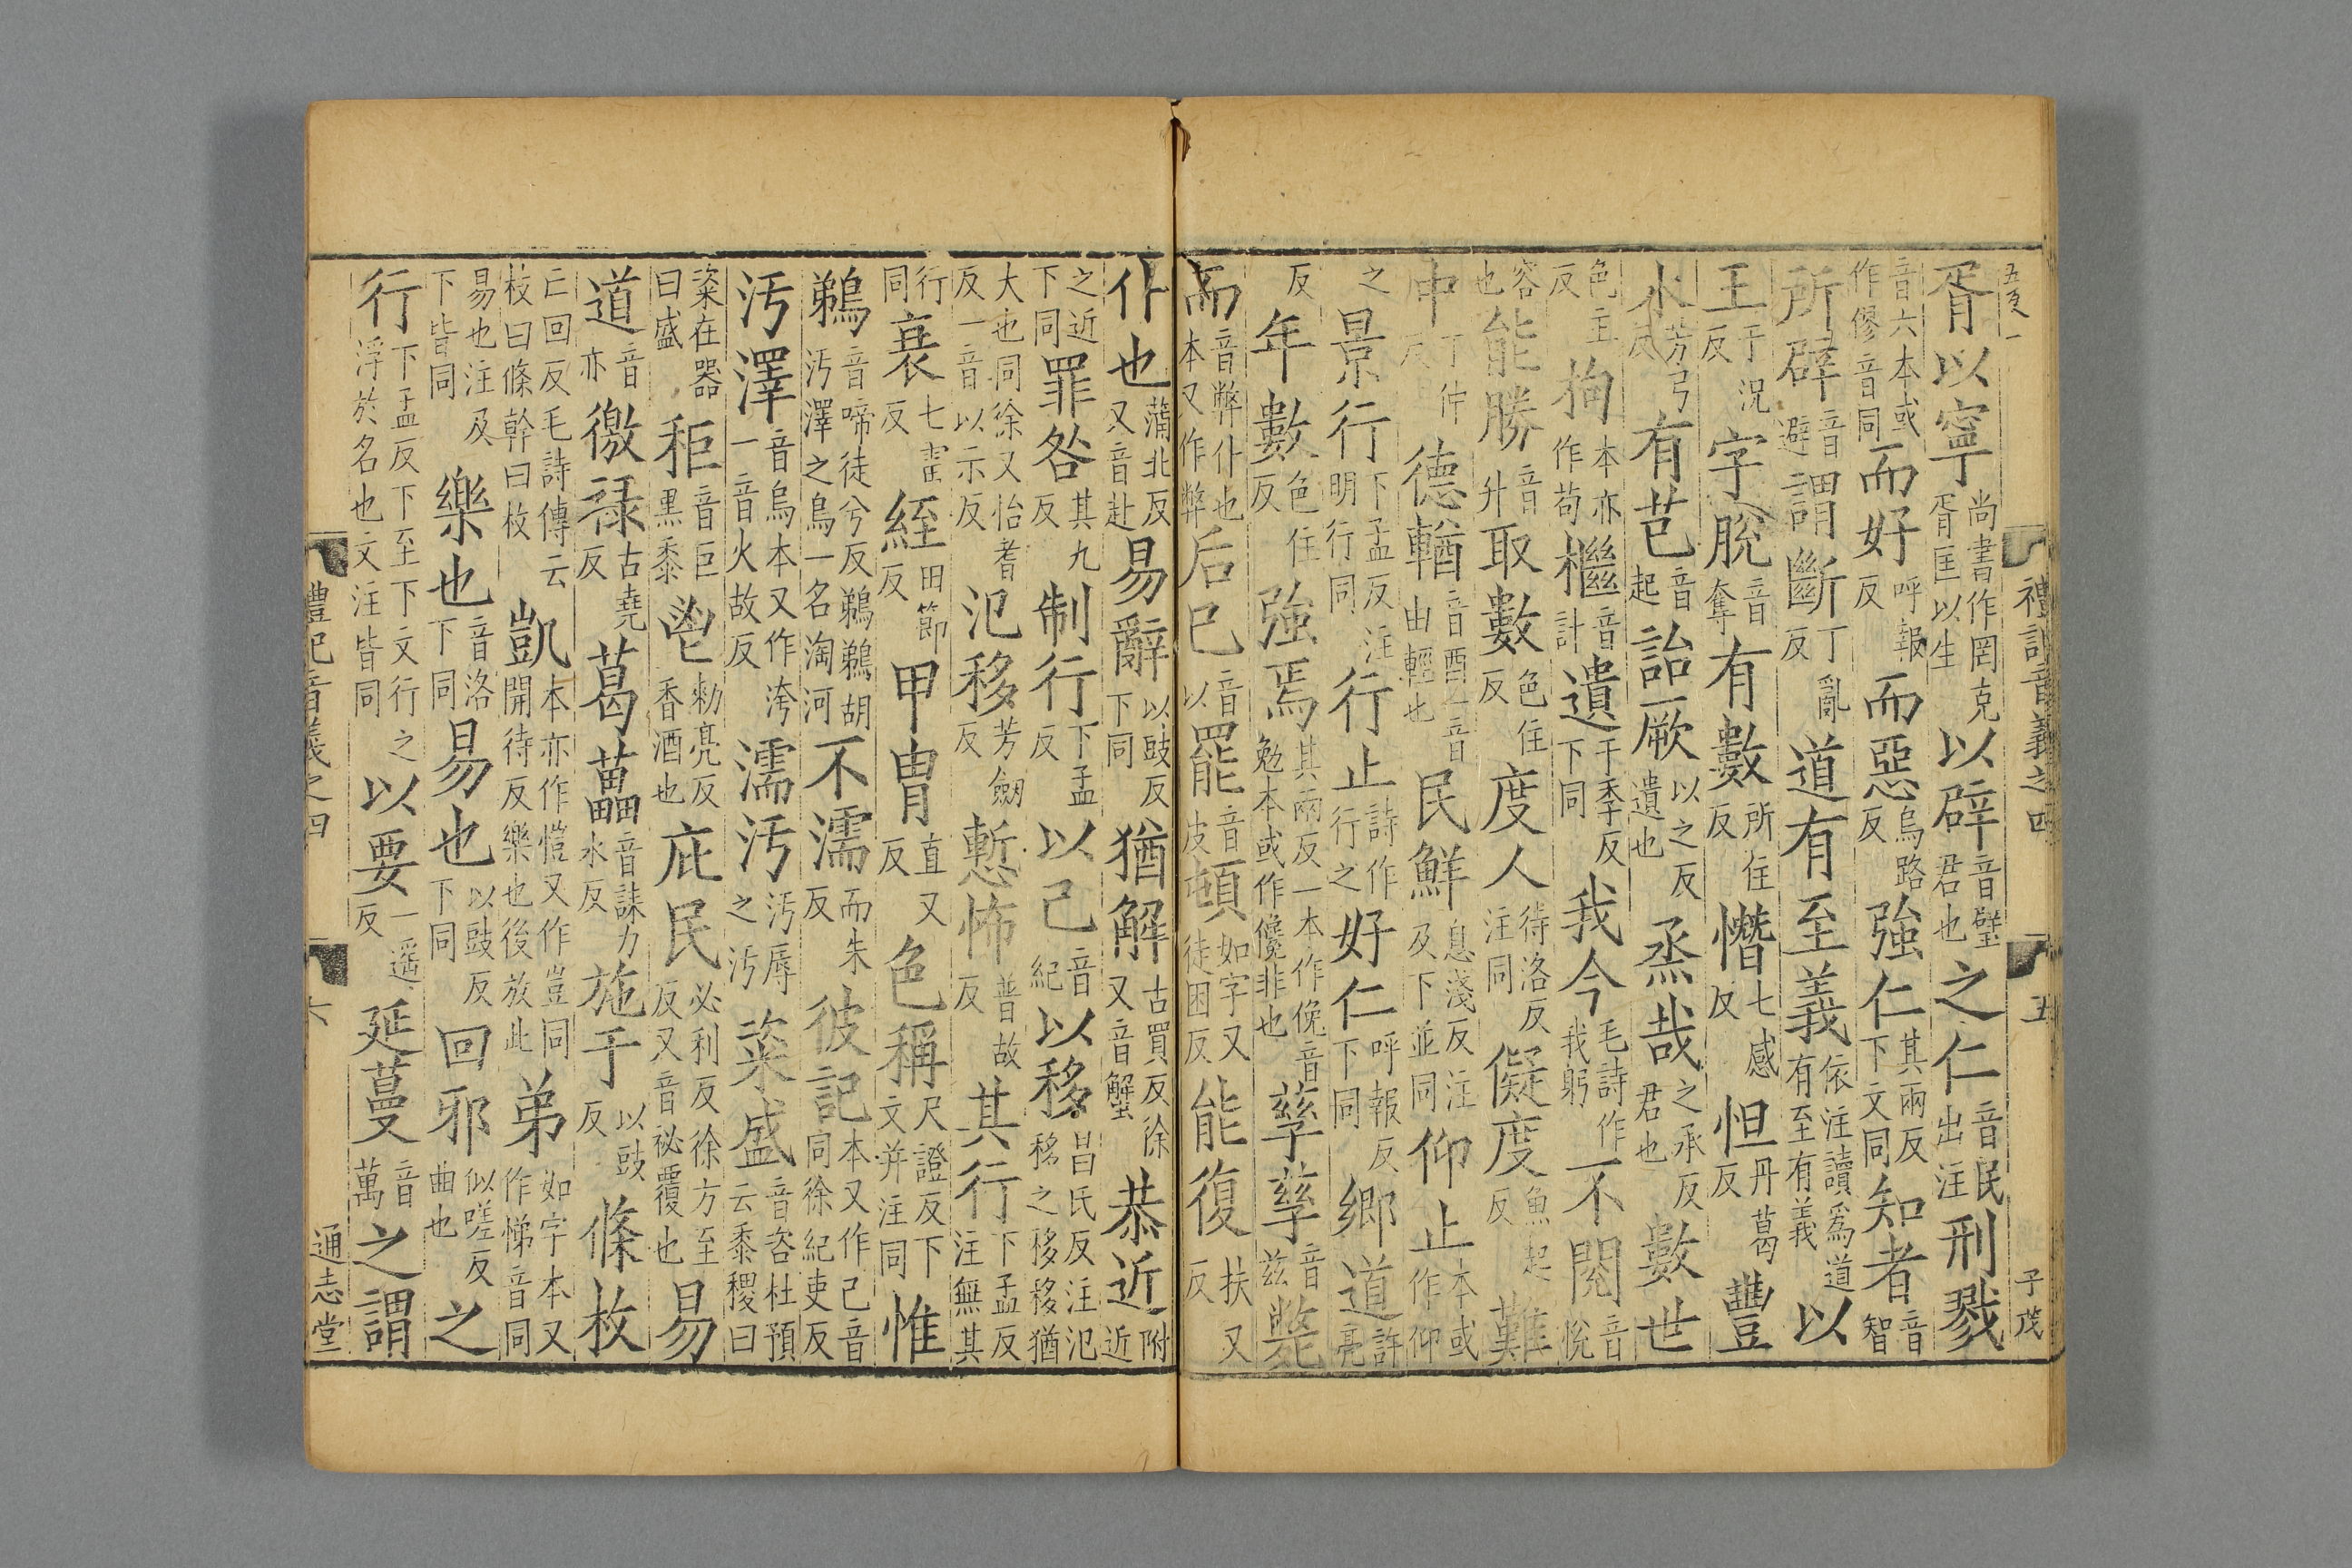 禮記音義之四 五 子茂
胥以寧尚書作罔克胥匡以生以辟音璧君也之仁音民出注刑戮
音六本或作僇音同而好呼報反而惡烏路反強仁其兩反下文同知者音智
所辟音避謂斷丁亂反道有至義依注讀爲道有至有義以
王于況反字脫音奪有數所住反憯七感反怛丹葛反豐
水芳弓反有芑音起詒厥以之反遺也烝哉之承反君也數世
色主反拘本亦作苟檵音計遺于季反下同我今毛詩作我躬不閱音悅
容也能勝音升取數色住反度人待洛反注同儗度魚起反難
中丁仲反德輶音酉一音由輕也民鮮息淺反注及下並同仰止本或作仰
之景行下孟反注明行同行止詩作行之好仁呼報反下同鄉道許亮
反年數色住反強焉其兩反一本作俛音勉本或作儳非也孳孳音兹斃
而音弊仆也本又作弊后已音以罷音皮頓如字又徒困反能復扶又反
仆也蒲北反又音赴易辭以豉反下同猶解古買反徐又音蟹恭近附近
之近下同罪咎其九反制行下孟反以己音紀以移昌氏反注氾移之移移猶
大也同徐又怡耆反一音以示反氾移芳劒反慙怖普故反其行下孟反注無其
行同衰七雷反絰田節反甲冑直又反色稱尺證反下文并注同惟
鵜音啼徒兮反鵜鵜胡汚澤之鳥一名淘河不濡而朱反彼記本又作己音同徐紀吏反
汚澤音烏本又作洿一音火故反濡汚汚辱之汚粢盛音咨杜預云黍稷曰
粢在器曰盛秬音巨黑黍鬯勑亮反香酒也庇民必利反徐方至反又音祕覆也易
道音亦徼祿古堯反葛藟音誄力水反施于以豉反條枚
亡回反毛詩傳云枝曰條幹曰枚凱本亦作愷又作豈同開待反樂也後放此弟如字本又作悌音同
易也注及下皆同樂也音洛下同易也以豉反下同回邪似嗟反曲也之
行下孟反下至下文行之浮於名也文注皆同以要一遥反延蔓音萬之謂
禮記音義之四 六 通志堂